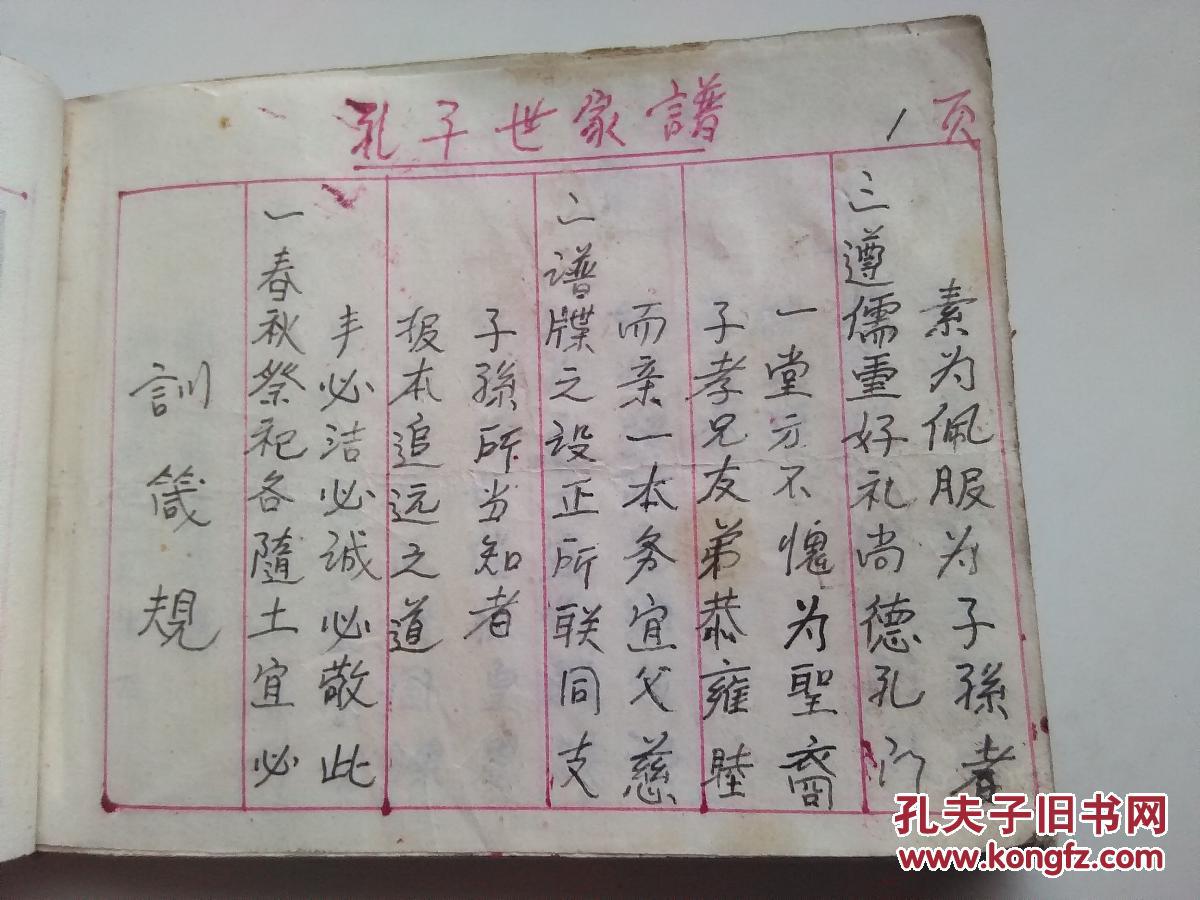 孔子世家譜
1 页
訓箴規
一春秋祭祀各隨土宜必
丰必洁必诚必敬此
报本追远之道
子孫所当知者
二谱牒之设正所联同支
而亲一本务宜父慈
子孝兄友弟恭雍睦
一堂方不愧为聖裔
三遵儒重好礼尚德孔门
素为佩服为子孫者
孔夫子旧书网
www.kongfz.com